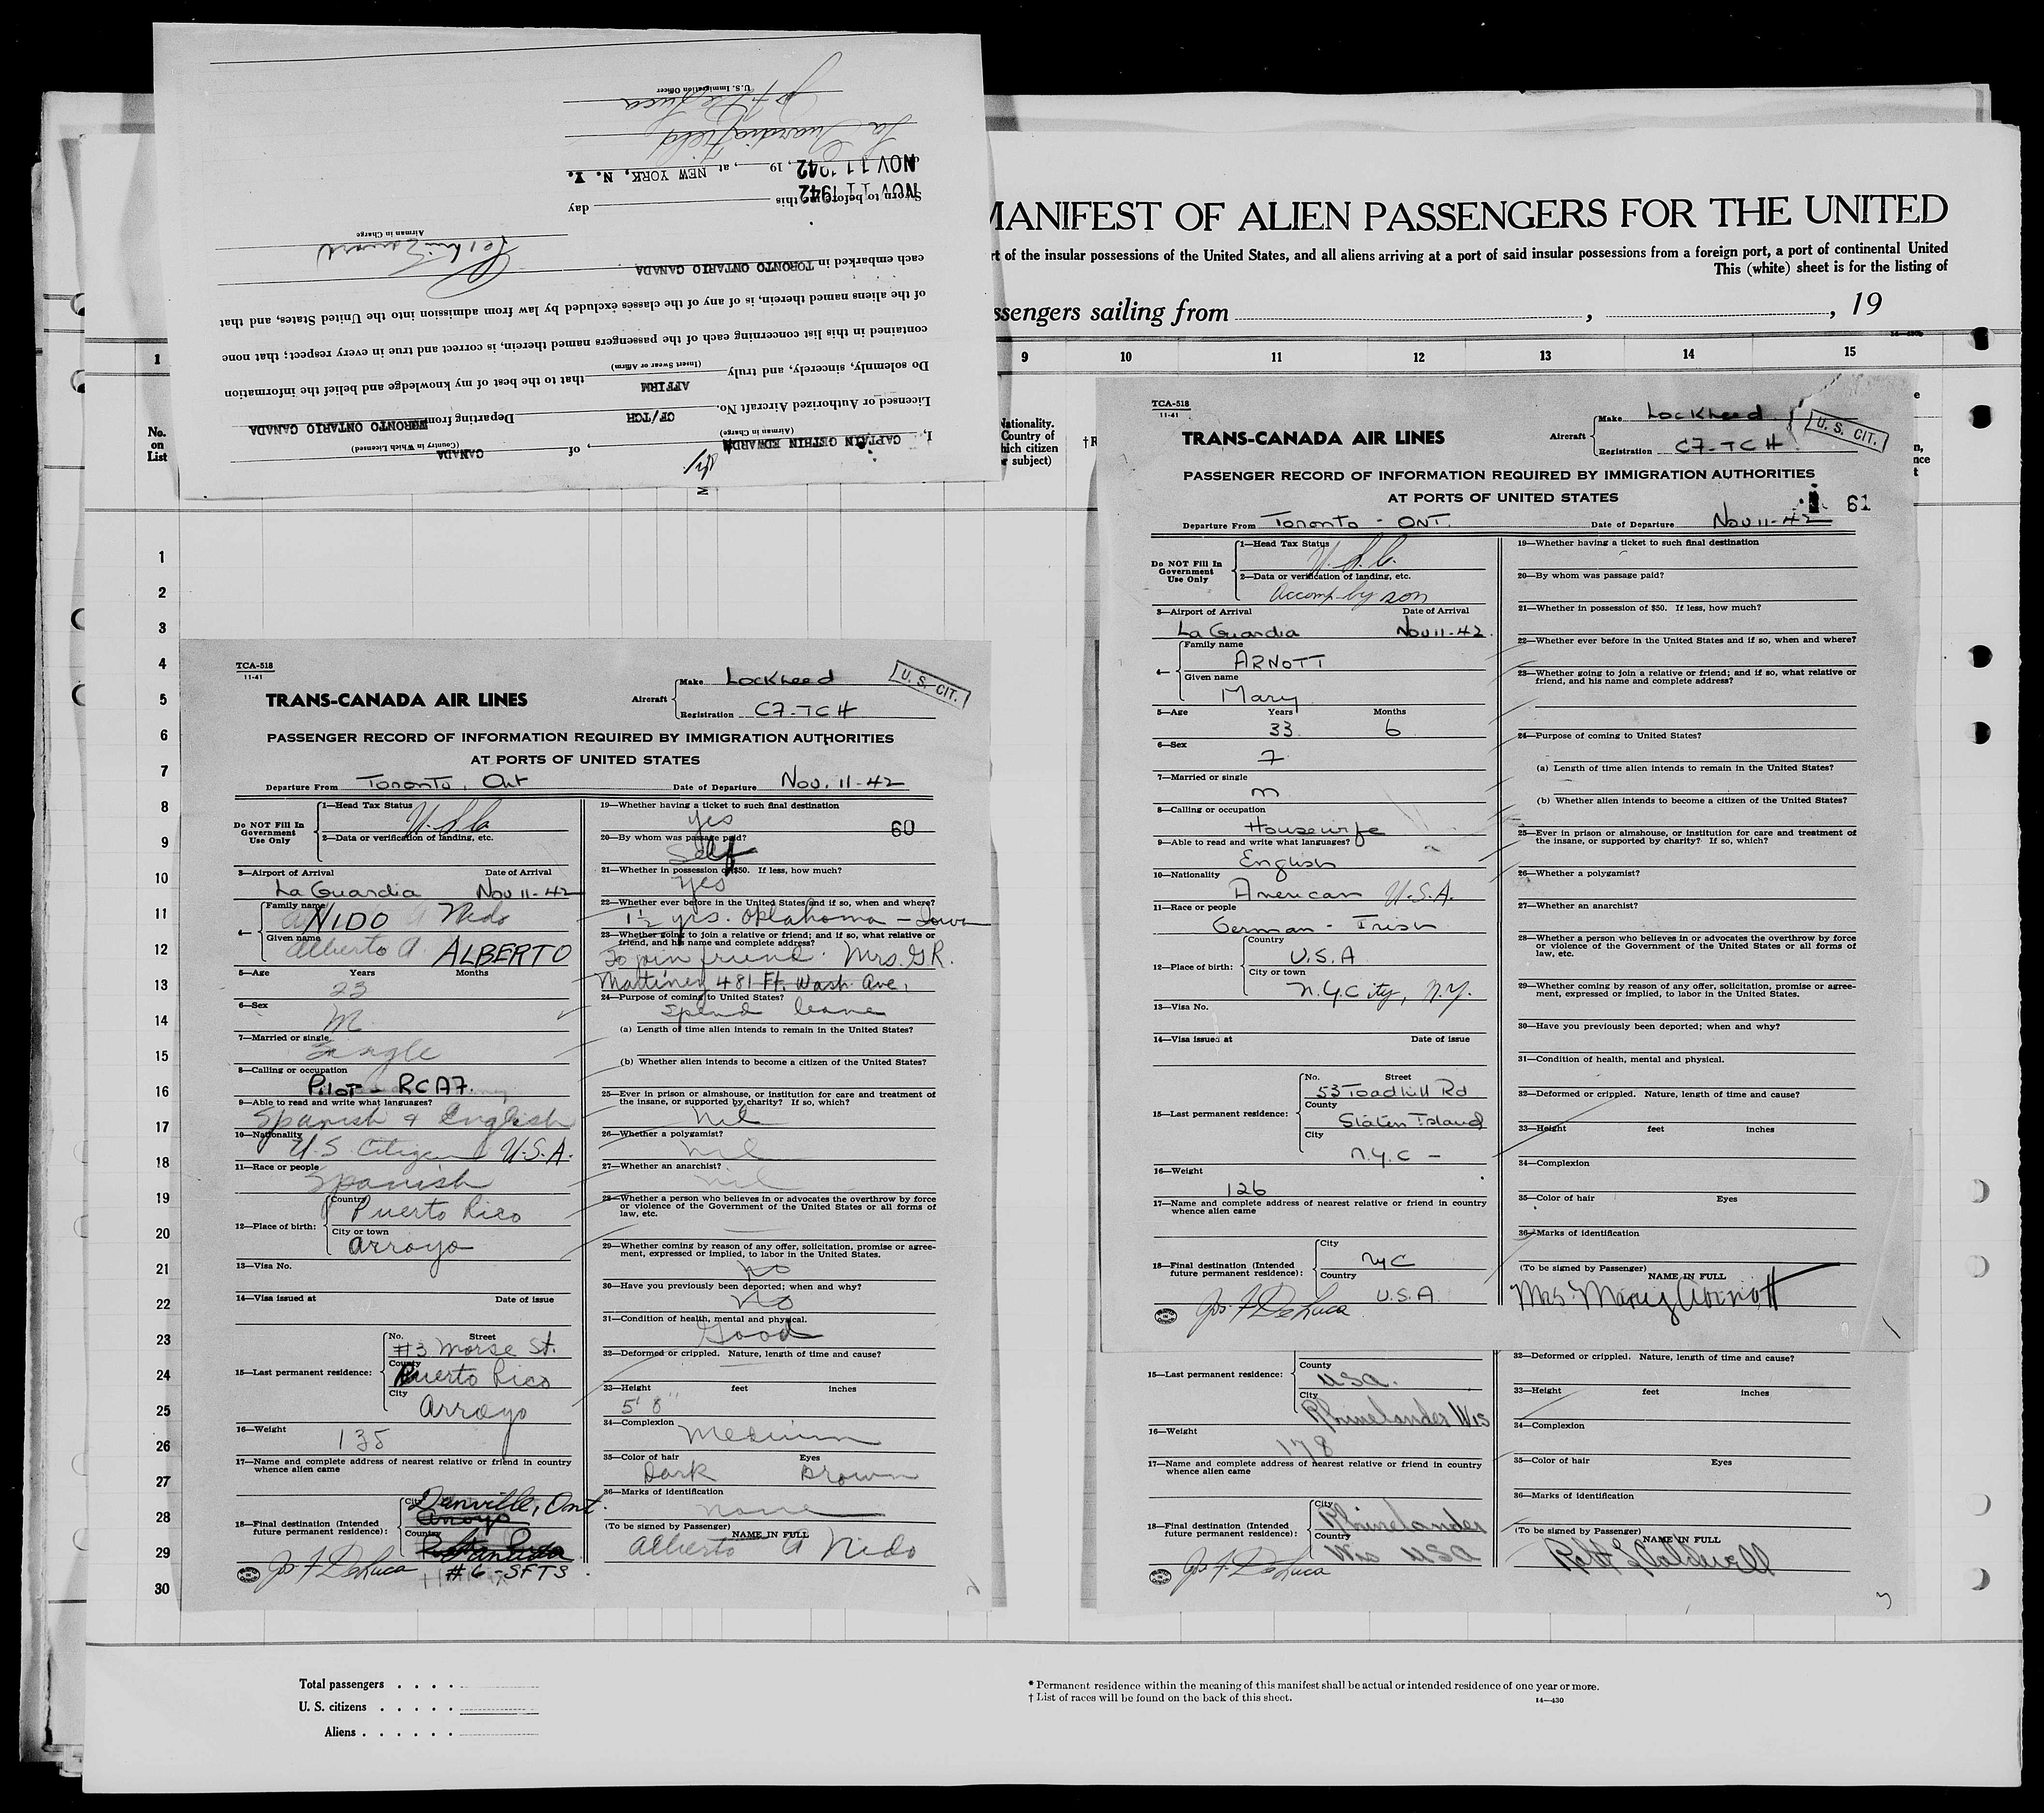 U.S. Immigration Officer
La Guardia Field
NOV 11 1942, 19, at NEW YORK, N. Y.
Sworn to before me this NOV 11 1942 day
Airman in Charge
each embarked in TORONTO ONTARIO CANADA
of the aliens named therein, is of any of the classes excluded by law from admission into the United States, and that
contained in this list concerning each of the passengers named therein, is correct and true in every respect; that none
(Insert Swear or Affirm)
Do solemnly, sincerely, and truly AFFIRM that to the best of my knowledge and belief the information
Licensed or Authorized Aircraft No. CF/TCH Departing from TORONTO ONTARIO CANADA
(Airman in Charge) (Country in Which Licensed)
I, CAPTAIN GETHIN EDWARDS, of CANADA
MANIFEST OF ALIEN PASSENGERS FOR THE UNITED
rt of the insular possessions of the United States, and all aliens arriving at a port of said insular possessions from a foreign port, a port of continental United
This (white) sheet is for the listing of
ssengers sailing from , , 19
1 9 10 11 12 13 14 15
No. on List
Nationality.
Country of
which citizen
or subject)
†R
1
2
3
4
5
6
7
8
9
10
11
12
13
14
15
16
17
18
19
20
21
22
23
24
25
26
27
28
29
30
TCA-518
11-41
TRANS-CANADA AIR LINES
Aircraft
Make Lockheed
Registration C7-TCH
U. S. CIT.
PASSENGER RECORD OF INFORMATION REQUIRED BY IMMIGRATION AUTHORITIES
AT PORTS OF UNITED STATES
Departure From Toronto, Ont Date of Departure Nov. 11-42
Do NOT Fill In
Government
Use Only
1—Head Tax Status U.S.C.
2—Data or verification of landing, etc.
3—Airport of Arrival Date of Arrival
La Guardia Nov 11-42
4—
Family name NIDO Nido
Given name Alberto A. ALBERTO
5—Age Years Months
23
6—Sex
M
7—Married or single
Single
8—Calling or occupation
Pilot - RCA7.
9—Able to read and write what languages?
Spanish & English
10—Nationality
U.S. Citizen U.S.A.
11—Race or people
Spanish
12—Place of birth:
Country Puerto Rico
City or town
Arroyo
13—Visa No.
14—Visa issued at Date of issue
15—Last permanent residence:
No. Street
#3 Morse St.
County
Puerto Rico
City
Arroyo
16—Weight
135
17—Name and complete address of nearest relative or friend in country
whence alien came
18—Final destination (Intended
future permanent residence):
City Dunville, Ont.
Arroyo
Country
Canada
#6-SFTS
Jos F DeLuca
19—Whether having a ticket to such final destination
yes
60
20—By whom was passage paid?
Self
21—Whether in possession of $50. If less, how much?
yes
22—Whether ever before in the United States and if so, when and where?
1½ yrs. Oklahoma - Iowa
23—Whether going to join a relative or friend; and if so, what relative or
friend, and his name and complete address?
To join friend. Mrs. G.R.
Martinez 481 Ft. Wash. Ave.
24—Purpose of coming to United States?
Spend leave
(a) Length of time alien intends to remain in the United States?
(b) Whether alien intends to become a citizen of the United States?
25—Ever in prison or almshouse, or institution for care and treatment of
the insane, or supported by charity? If so, which?
Nil
26—Whether a polygamist?
nil
27—Whether an anarchist?
nil
28—Whether a person who believes in or advocates the overthrow by force
or violence of the Government of the United States or all forms of
law, etc.
29—Whether coming by reason of any offer, solicitation, promise or agree-
ment, expressed or implied, to labor in the United States.
no
30—Have you previously been deported; when and why?
No
31—Condition of health, mental and physical.
Good
32—Deformed or crippled. Nature, length of time and cause?
33—Height feet inches
5' 8"
34—Complexion
Medium
35—Color of hair Eyes
Dark Brown
36—Marks of identification
none
(To be signed by Passenger)
NAME IN FULL
Alberto A Nido
TCA-518
11-41
TRANS-CANADA AIR LINES
Aircraft
Make Lockheed
Registration C7-TCH
U. S. CIT.
PASSENGER RECORD OF INFORMATION REQUIRED BY IMMIGRATION AUTHORITIES
AT PORTS OF UNITED STATES
61
Departure From Toronto - ONT. Date of Departure Nov 11-42
Do NOT Fill In
Government
Use Only
1—Head Tax Status
U.S.C.
2—Data or verification of landing, etc.
Accomp by son
3—Airport of Arrival Date of Arrival
La Guardia Nov 11-42.
4—
Family name
ARNOTT
Given name
Mary
5—Age Years Months
33 6
6—Sex
7
7—Married or single
m
8—Calling or occupation
Housewife
9—Able to read and write what languages?
English
10—Nationality
American U.S.A.
11—Race or people
German - Irish
12—Place of birth:
Country
U.S.A
City or town
N.Y. City, N.Y.
13—Visa No.
14—Visa issued at Date of issue
15—Last permanent residence:
No. Street
53 Toadhill Rd
County
Staten Island
City
N.Y.C -
16—Weight
126
17—Name and complete address of nearest relative or friend in country
whence alien came
18—Final destination (Intended
future permanent residence):
City
NYC
Country
U.S.A.
Jos F DeLuca
19—Whether having a ticket to such final destination
20—By whom was passage paid?
21—Whether in possession of $50. If less, how much?
22—Whether ever before in the United States and if so, when and where?
23—Whether going to join a relative or friend; and if so, what relative or
friend, and his name and complete address?
24—Purpose of coming to United States?
(a) Length of time alien intends to remain in the United States?
(b) Whether alien intends to become a citizen of the United States?
25—Ever in prison or almshouse, or institution for care and treatment of
the insane, or supported by charity? If so, which?
26—Whether a polygamist?
27—Whether an anarchist?
28—Whether a person who believes in or advocates the overthrow by force
or violence of the Government of the United States or all forms of
law, etc.
29—Whether coming by reason of any offer, solicitation, promise or agree-
ment, expressed or implied, to labor in the United States.
30—Have you previously been deported; when and why?
31—Condition of health, mental and physical.
32—Deformed or crippled. Nature, length of time and cause?
33—Height feet inches
34—Complexion
35—Color of hair Eyes
36—Marks of identification
(To be signed by Passenger)
NAME IN FULL
Mrs Mary Arnott
15—Last permanent residence:
County
USA.
City
Rhinelander Wis
16—Weight
178
17—Name and complete address of nearest relative or friend in country
whence alien came
18—Final destination (Intended
future permanent residence):
City
Rhinelander
Country
Wis USA
Jos F DeLuca
32—Deformed or crippled. Nature, length of time and cause?
33—Height feet inches
34—Complexion
35—Color of hair Eyes
36—Marks of identification
(To be signed by Passenger)
NAME IN FULL
Caldwell
Total passengers . . . .
U. S. citizens . . . . .
Aliens . . . . . .
* Permanent residence within the meaning of this manifest shall be actual or intended residence of one year or more.
† List of races will be found on the back of this sheet.
14—430